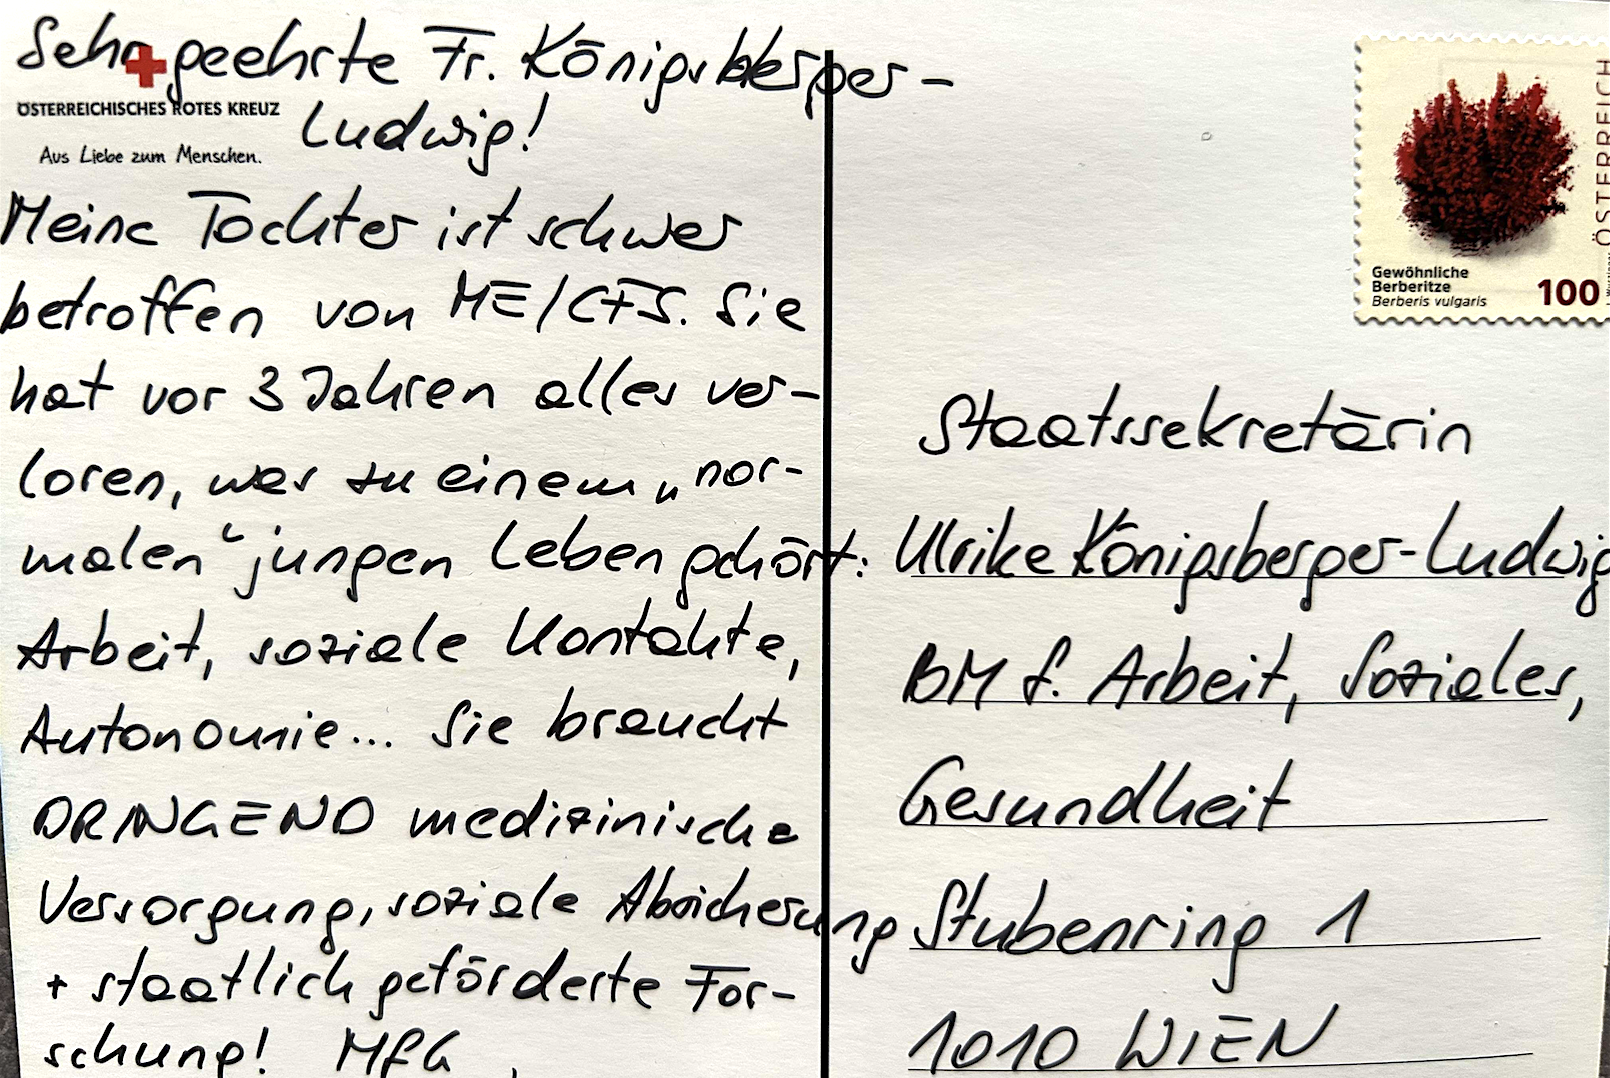 Sehr geehrte Fr. Königsberger-
Ludwig!
ÖSTERREICHISCHES ROTES KREUZ
Aus Liebe zum Menschen.
Meine Tochter ist schwer
betroffen von ME/CFS. Sie
hat vor 3 Jahren alles ver-
loren, was zu einem „nor-
malen“ jungen Leben gehört:
Arbeit, soziale Kontakte,
Autonomie... Sie braucht
DRINGEND medizinische
Versorgung, soziale Absicherung
+ staatlich geförderte For-
schung! MfG
ÖSTERREICH
Gewöhnliche
Berberitze
Berberis vulgaris
100
Staatssekretärin
Ulrike Königsberger-Ludwig
BM f. Arbeit, Soziales,
Gesundheit
Stubenring 1
1010 WIEN